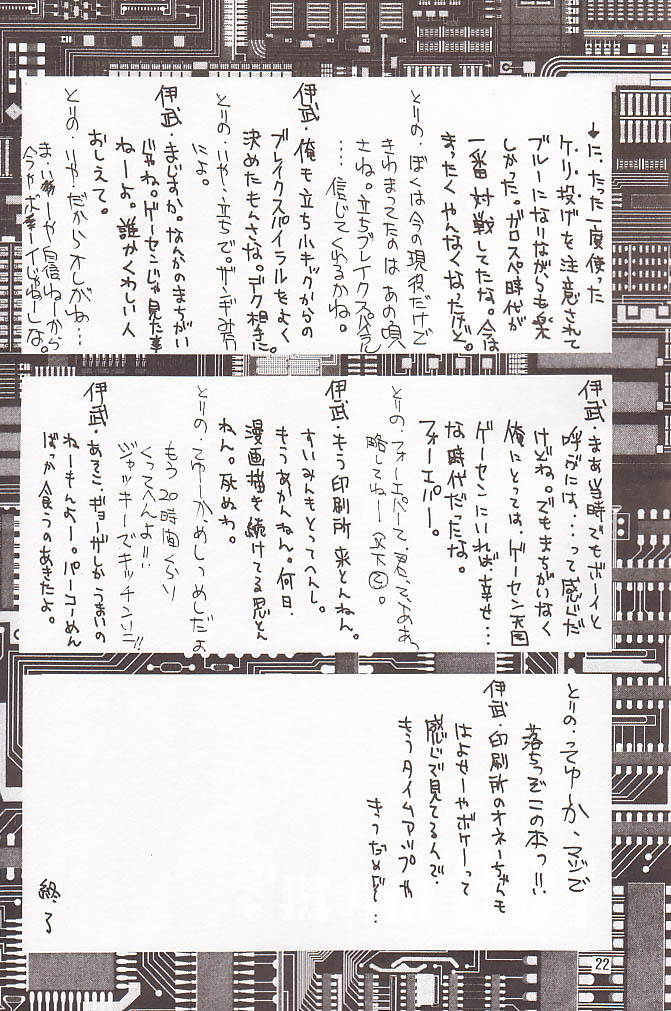 ↓に、たった一度使った
ケリ投げを注意されて
ブルーになりながらも楽
しかった。ガロスペ時代が
一番対戦してたな。今は
まったくやんなくなったけど。
とりの・ぼくは今の現役だけで
きわまってたのはあの頃
さね。立ちブレイクスパイラル
…信じてくれるかね。
伊武・俺も立ち小キックからの
ブレイクスパイラルをよく
決めたもんさな。デク相手に。
とりの・いや、立ちで。ザンギみたい
によ。
伊武・まじすか。なんかのまちがい
じゃね。ゲーセンじゃ見た事
ねーよ。誰かくわしい人
おしえて。
とりの・いや、だからオレがね…
まぁいーや自信ねーから
今やボーイじゃねしな。
伊武・まあ当時でもボーイと
呼ぶには…って感じだ
けどね。でもまちがいなく
俺にとっては、ゲーセン天国
ゲーセンにいれば、幸せ…
な時代だったな。
フォーエバー。
とりの・フォーエバーて、君、
略してねー
伊武・もう印刷所来とんねん。
すいみんもとってへんし。
もうあかんねん。何日、
漫画描き続けてる思とん
ねん。死ぬわ。
とりの・てゆーか、めしつめしだよ
もう20時間くらい
くってへんよ!!
ジャッキーでキッチンソニ!!
伊武・あそこ、ギョーザしかうまいの
ねーもんよー。パーコーめん
ばっか食うのあきたよ。
とりの・ってゆーか、マジで
落ちっぞこの本っ!!
伊武・印刷所のオネーちゃんも
はよせーやボケーって
感じで見てるんで、
もうタイムアップや
きっだめぽ…
終了
22